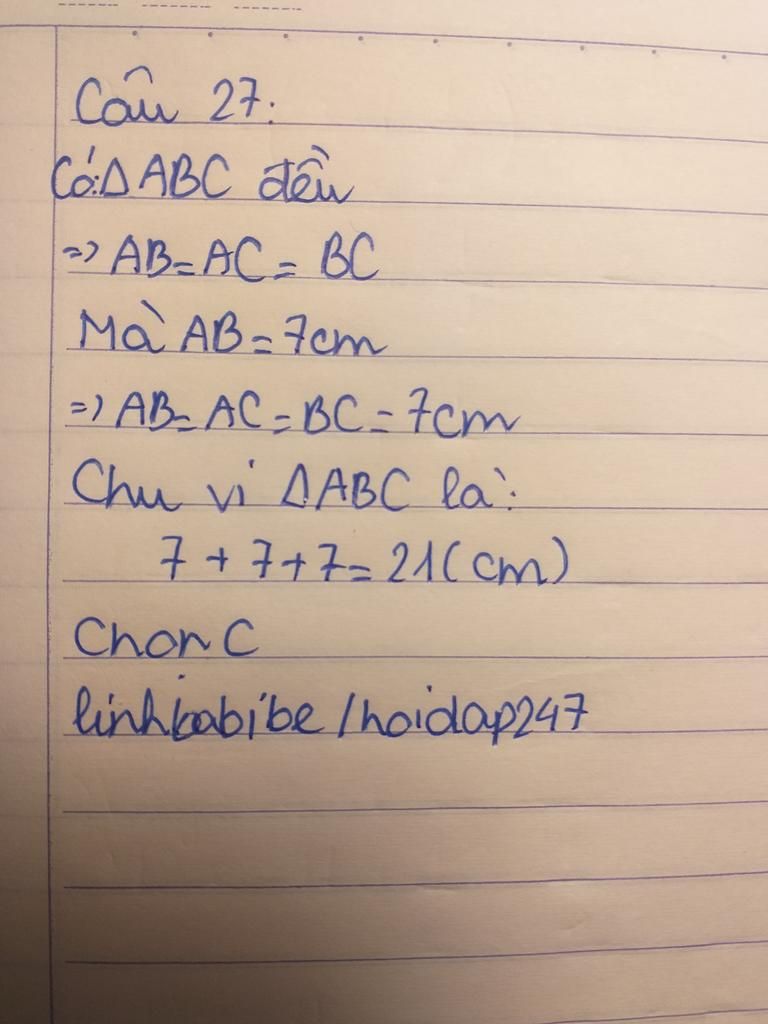 Câu 27:
Có: Δ ABC đều
=> AB = AC = BC
Mà AB = 7cm
=> AB = AC = BC = 7cm
Chu vi Δ ABC là:
7 + 7 + 7 = 21 (cm)
Chọn C
linhkabibe / hoidap247